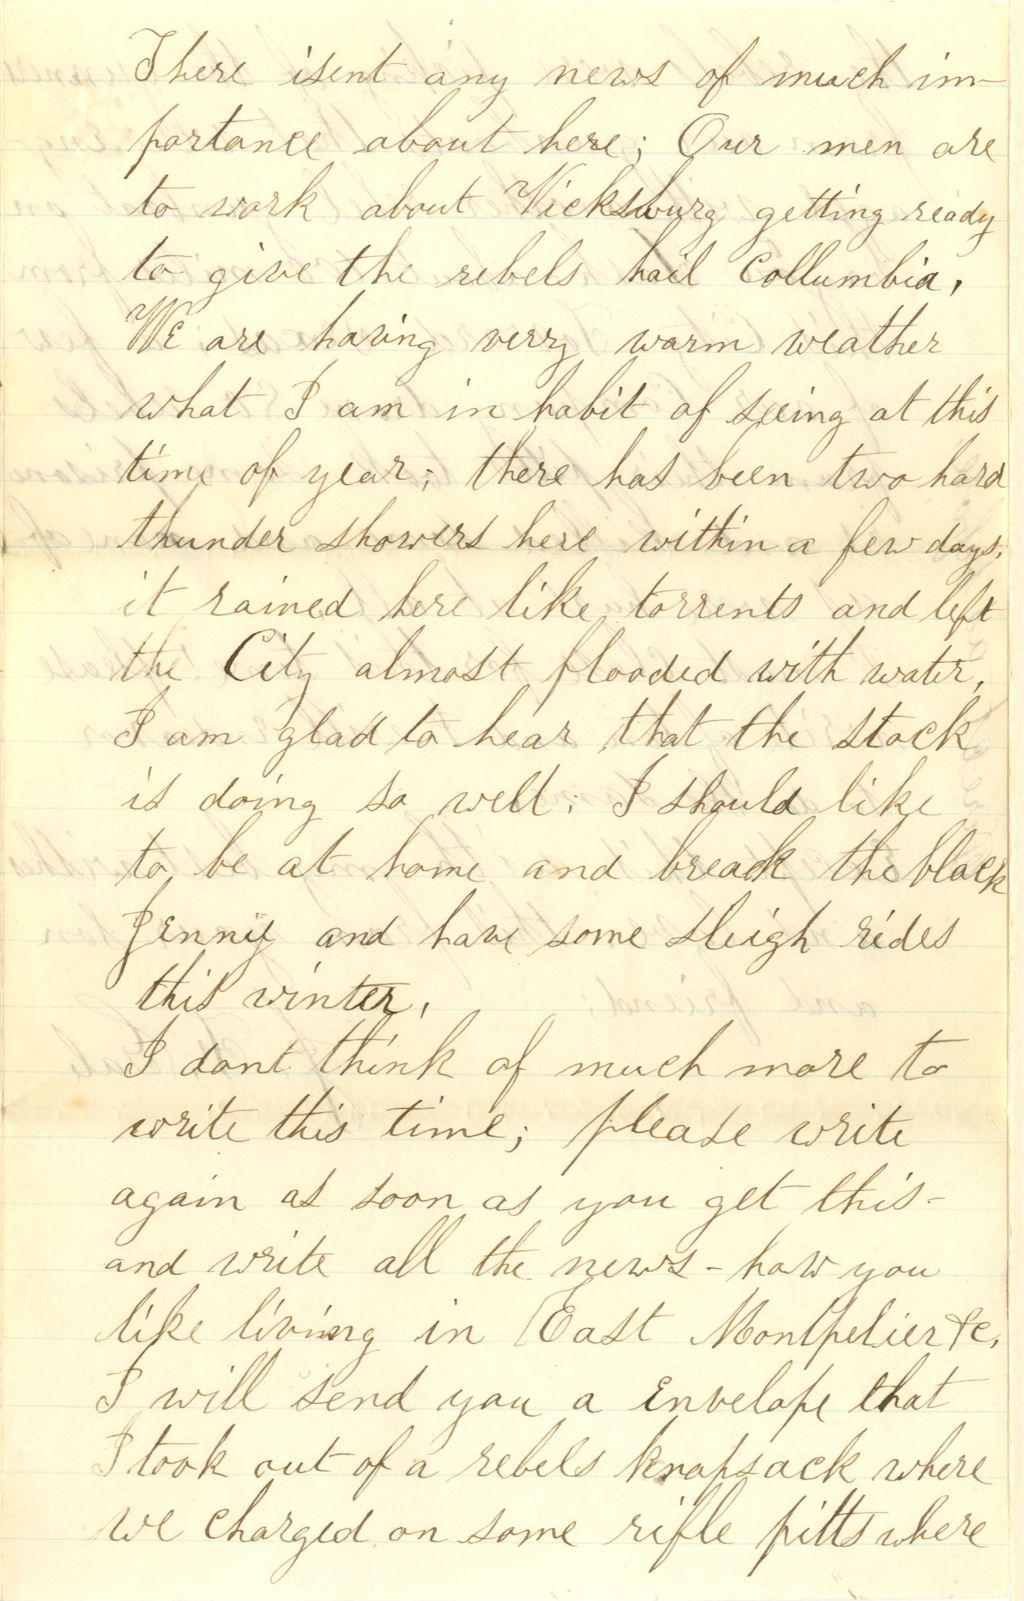 There isent any news of much im-
portance about here; Our men are
to work about Vicksburg getting ready
to give the rebels hail Collumbia,
We are having verry warm weather
what I am in habit of seeing at this
time of year; there has been two hard
thunder showers here within a few days,
it rained here like torrents and left
the City almost flooded with water,
I am glad to hear that the stock
is doing so well; I should like
to be at home and breack the black
Jenny and have some sleigh rides
this winter,
I dont think of much more to
write this time; please write
again as soon as you get this-
and write all the news - how you
like living in East Montpelier &c,
I will send you a envelope that
I took out of a rebels knapsack where
we charged on some rifle pitts where